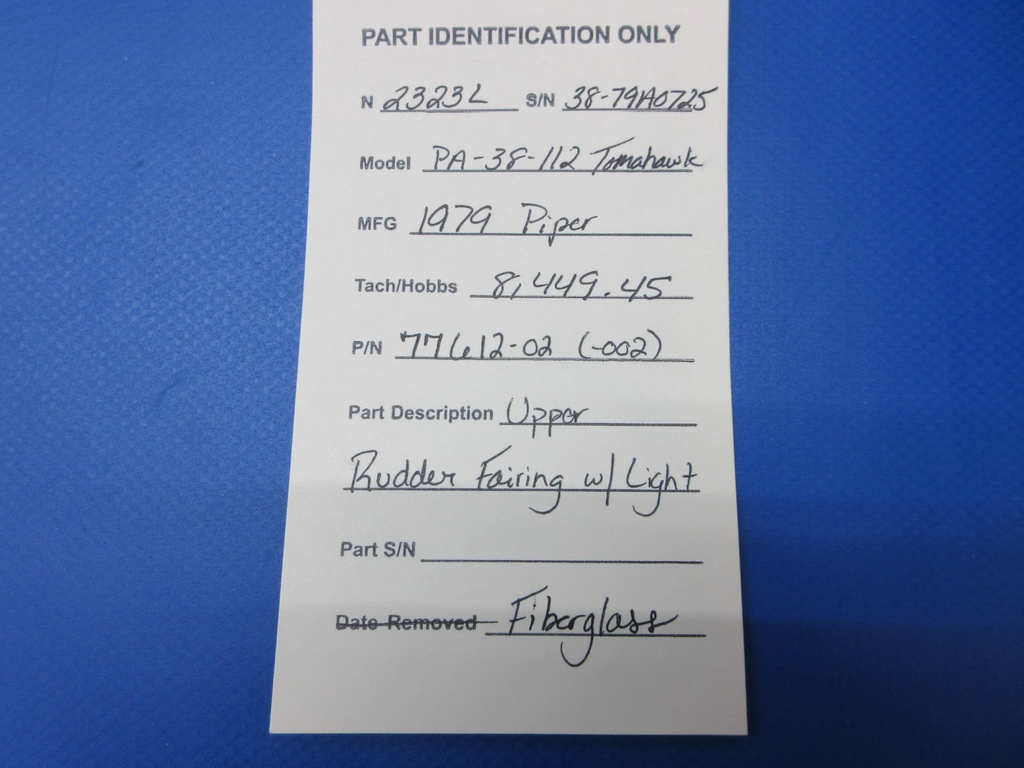 PART IDENTIFICATION ONLY
N 2323L S/N 38-79A0725
Model PA-38-112 Tomahawk
MFG 1979 Piper
Tach/Hobbs 8,449.45
P/N 77612-02 (-002)
Part Description Upper
Rudder Fairing w/ Light
Part S/N
Date Removed Fiberglass